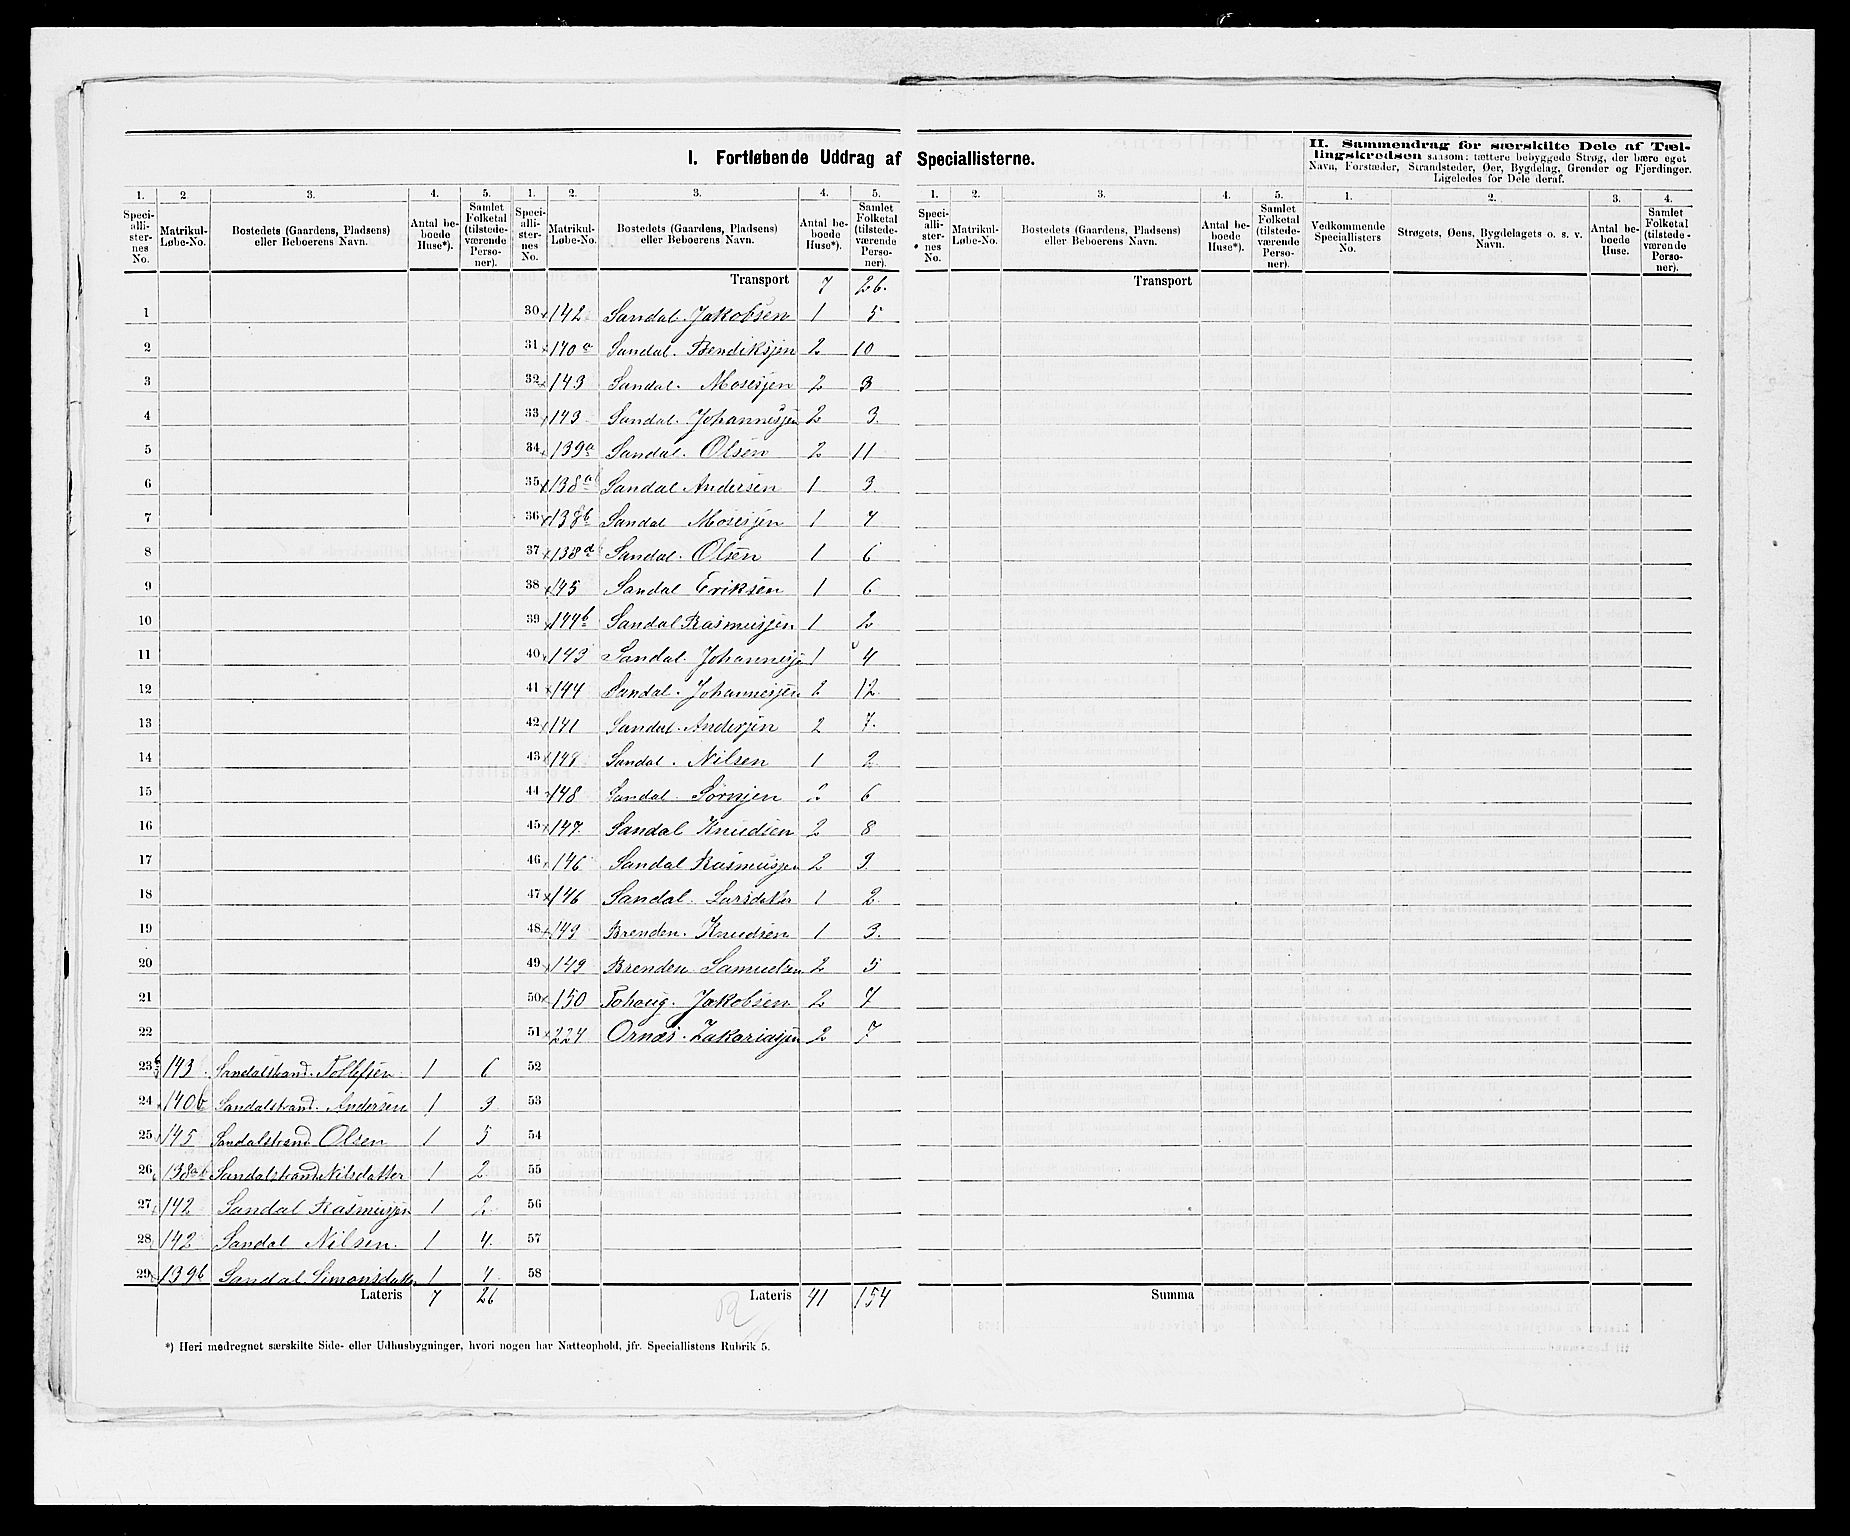 I. Fortløbende Uddrag af Speciallisterne.
II. Sammendrag for særskilte Dele af Tæl-
lingskredsen saasom: tættere bebyggede Strøg, der bære eget
Navn, Forstæder, Strandsteder, Øer, Bygdelag, Grender og Fjerdinger.
Ligeledes for Dele deraf.
1. 2 3. 4. 5. 1. 2. 3. 4. 5. 1. 2. 3. 4. 5. 1. 2. 3. 4.
Speci-alli-ster-nes No. Matrikul-Løbe-No. Bostedets (Gaardens, Pladsens) eller Beboerens Navn. Antal be-boede Huse*). Samlet Folketal (tilstede-værende Perso-ner).
Speci-alli-ster-nes No. Matrikul-Løbe-No. Bostedets (Gaardens, Pladsens) eller Beboerens Navn. Antal be-boede Huse*). Samlet Folketal (tilstede-værende Perso-ner).
Speci-alli-ster-nes No. Matrikul-Løbe-No. Bostedets (Gaardens, Pladsens) eller Beboerens Navn. Antal be-boede Huse*). Samlet Folketal (tilstede-værende Perso-ner).
Vedkommende Speciallisters No. Strøgets, Øens, Bygdelagets o. s. v. Navn. Antal be-boede Huse. Samlet Folketal (tilstede-værende Perso-ner).
Transport 7 26. Transport
1 30 142 Sandal. Jakobsen 1 5
2 31 140a Sandal. Bendiksjen 2 10
3 32 143 Sandal. Mosesjen 2 3
4 33 143 Sandal. Johannesjen 2 3.
5 34 139a Sandal. Olsen 2 11
6 35 138a Sandal Andersen 1 3.
7 36 138b Sandal Mosesjen 1 4
8 37 138d Sandal. Olsen 1 6
9 38 145 Sandal Eriksen 1 6
10 39 144b Sandal Rasmusjen 1 2
11 40 143 Sandal. Johannesje 1 4
12 41 144 Sandal. Johannesjen 2 12
13 42 141 Sandal. Andersjen 2 7.
14 43 148 Sandal. Nilsen 1 2
15 44 148 Sandal Sörnsjen 2 6
16 45 147. Sandal Knudsen 2 8
17 46 146 Sandal Rasmusjen 2 3.
18 47 146 Sandal. Larsdatter 1 2.
19 48 149 Brenden. Knudsen 1 3.
20 49 149 Brenden Samuelsen 2 5
21 50 150 Tohoug. Jakobsen 2 4
22 51 224 Ornæs. Zakariasjen 2 7
23 143 Sandalstrand. Tollefsen 1 6 52
24 140b Sandalstrand. Andersen 1 3 53
25 145 Sandalstrand Olsen 1 5 54
26 138ab Sandalstrand Nilsdatter 1 2. 55
27 142 Sandal Rasmusjen 1 2. 56
28 142 Sandal Nilsen. 1 4. 57
29 139b Sandal. Simonsdatter 1 4 58
Lateris 7 26 Lateris 41 154 Summa
*) Heri medregnet særskilte Side- eller Udhusbygninger, hvori nogen har Natteophold, jfr. Speciallistens Rubrik 5.